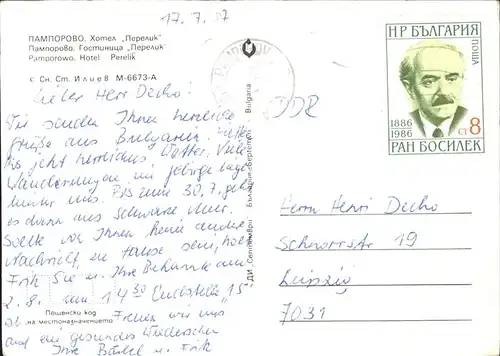 17. 7. 87
ПАМПОРОВО. Хотел „Перелик"
Пампорово. Гостиница „Перелик"
Pamporowo. Hotel Perelik
с Сн. Ст. Илиев М-6673-А
Lieber Herr Decho!
Wir senden Ihnen herzliche
Grüße aus Bulgarien.
bis jetzt herrliches Wetter. Viele
Wanderungen im Gebirge liegen
hinter uns. Bis zum 30.7. geht
es dann ans Schwarze Meer.
Sollte bei Ihnen keine andere
Nachricht zu Hause sein, holt
Frik Sie u. Ihre Bekannte am
2. 8. um 14 30 Endstelle „15"
ab. Freuen wir uns
auf ein gesundes Wiedersehen
Ihre Bärbel u. Frik
Пощенски код
на местоназначението
ДИ „Септември" България „Септември" Bulgaria
DDR
НР БЪЛГАРИЯ
ПОЩА
1886
1986
СТ 8
РАН БОСИЛЕК
Herrn Henri Decho
Schnorrstr 19
Leipzig
7031